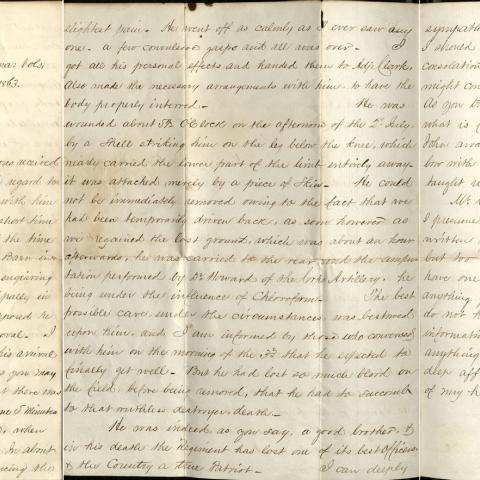 slightest pain. He went off as calmly as I ever saw any
one - a few convulsive gasps and all was over. I
got all his personal effects and handed them to Adjt Clark,
Also made the necessary arrangements with him, to have the
body properly interred -
He was
wounded about 5 O'Clock on the afternoon of the 2d July,
by a Shell striking him on the leg below the knee, which
nearly carried the lower part of the limb entirely away -
it was attached merely by a piece of Skin - He could
not be immediately removed owing to the fact that we
had been temporarily driven back, as soon however as
we regained the lost ground, which was about an hour
afterwards, he was carried to the rear and the ampu-
tation performed by Dr Howard of the Corps Artillery, he
being under the influence of Chloroform - The best
possible care under the circumstances was bestowed
upon him, and I am informed by those who conversed
with him on the morning of the 3d that he expected to
finally get well - But he had lost so much blood on
the field, before being removed, that he had to succumb
to that ruthless destroyer, death -
He was indeed as you say, a good brother, &
in his death the Regiment has lost one of its best Officers
& the Country a true Patriot - I can deeply
1863.
received
regard to
with him
short time
the time
Barn
enquiring
in
posed he
I
his arrival
you may
there was
5 Minutes
when
In about
the
sympath
I should
consolation
might
As you
what is
John
low with
taught
I presume
written
but too
have one
anything
do not
information
anything
deep aff
of my